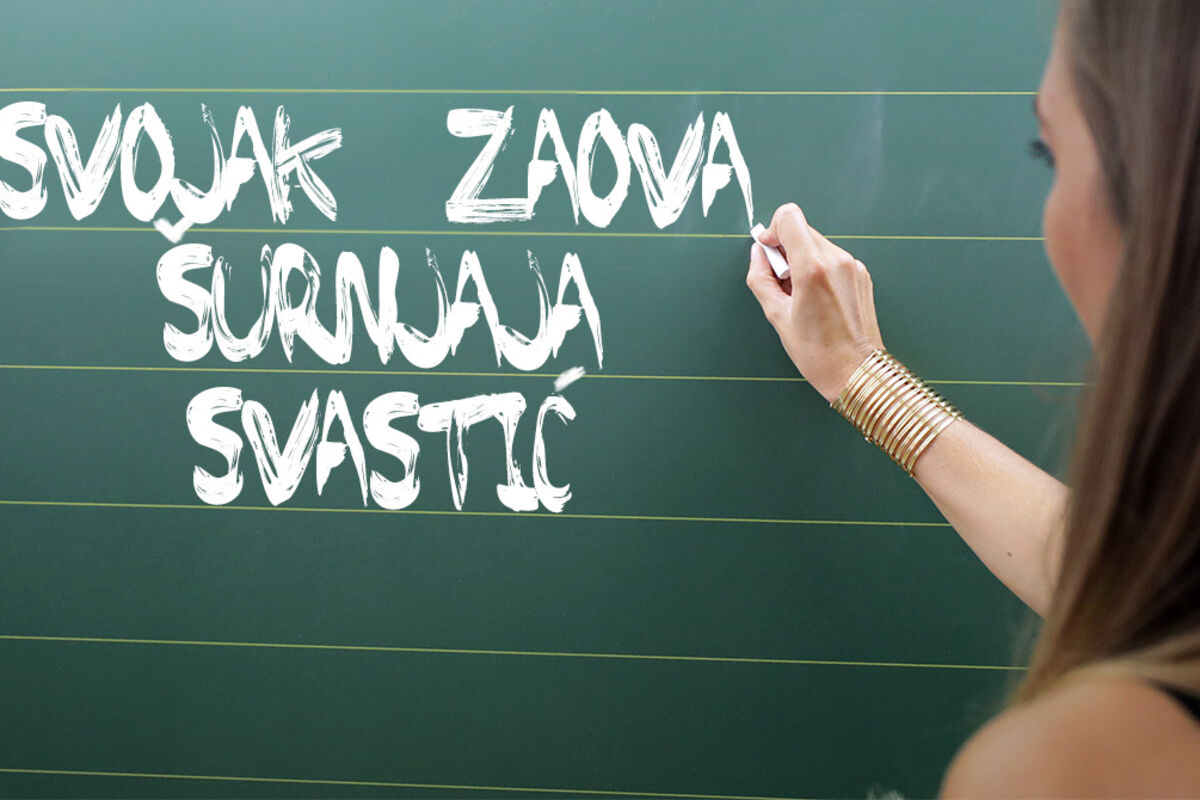 SVOJAK ZAOVA
ŠURNJAJA
SVASTIĆ